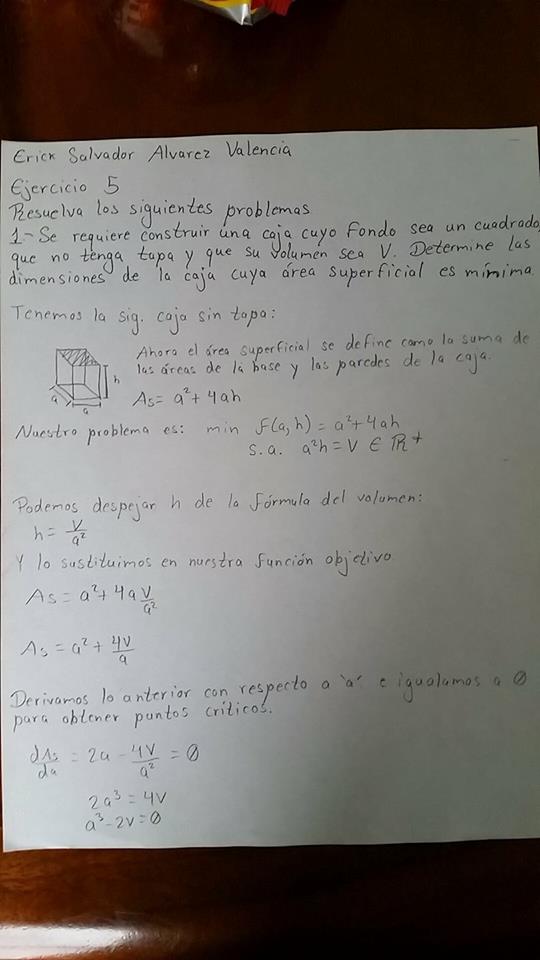 Erick Salvador Alvarez Valencia
Ejercicio 5
Resuelva los siguientes problemas
1.- Se requiere construir una caja cuyo fondo sea un cuadrado,
que no tenga tapa y que su volumen sea V. Determine las
dimensiones de la caja cuya área superficial es mínima.
Tenemos la sig. caja sin tapa:
Ahora el área superficial se define como la suma de
las áreas de la base y las paredes de la caja.
h
a
a
As = a² + 4ah
Nuestro problema es: min f(a,h) = a² + 4ah
s.a. a²h = V ∈ ℝ⁺
Podemos despejar h de la fórmula del volumen:
h = V/a²
Y lo sustituimos en nuestra función objetivo.
As = a² + 4a V/a²
As = a² + 4V/a
Derivamos lo anterior con respecto a 'a' e igualamos a 0
para obtener puntos críticos.
dAs/da = 2a - 4V/a² = 0
2a³ = 4V
a³ - 2V = 0